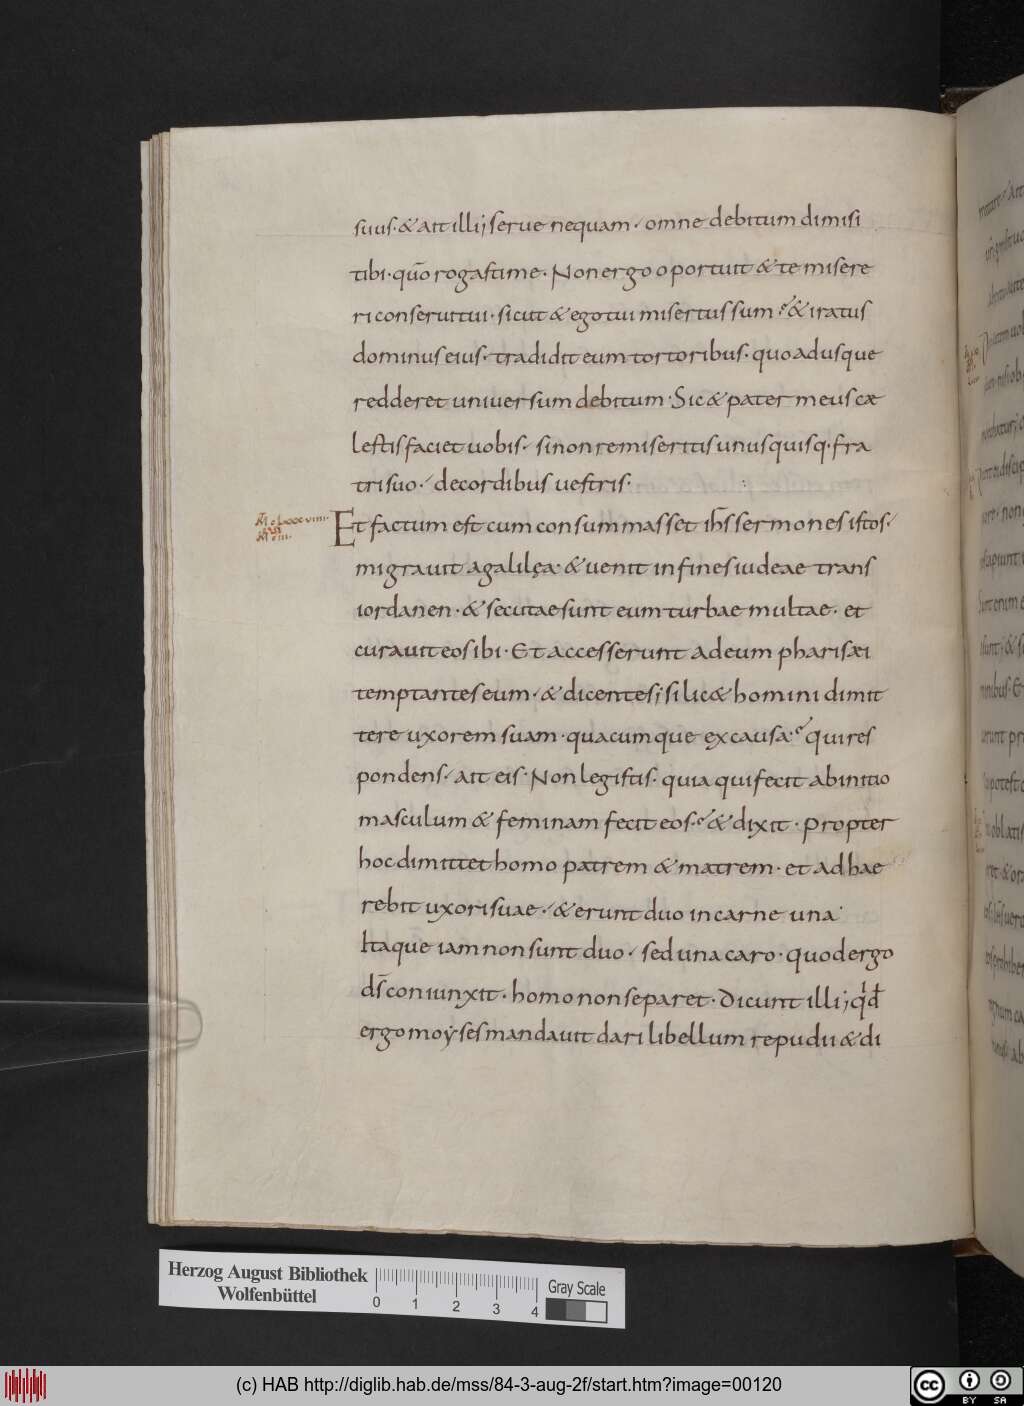 suus· & ait illi; serue nequam· omne debitum dimisi
tibi· quō rogastime· Non ergo oportuit & te misere
ri conserui tui· sicut & ego tui misertus sum· & iratus
dominus eius· tradidit eum tortoribus· quoadusque
redderet uniuersum debitum· Sic & pater meus cæ
lestis faciet uobis· si non remiseritis unusquisq· fra
tri suo· de cordibus uestris·
Et factum est cum consummasset ih̄s sermones istos·
migrauit a galilęa· & uenit in fines iudeae trans
iordanen· & secutae sunt eum turbae multae· et
curauit eos ibi· Et accesserunt ad eum pharisæi
temptantes eum· & dicentes; si lic& homini dimit
tere uxorem suam· quacumque ex causa· qui res
pondens· ait eis· Non legistis· quia qui fecit ab initio
masculum & feminam fecit eos· & dixit· Propter
hoc dimittet homo patrem & matrem· et adhae
rebit uxori suae· & erunt duo in carne una·
Itaque iam non sunt duo· sed una caro· quod ergo
dс̄ coniunxit· homo non separet· Dicunt illi; qd
ergo moẏses mandauit dari libellum repudii & di
Herzog August Bibliothek
Wolfenbüttel
0 1 2 3 4
Gray Scale
(c) HAB http://diglib.hab.de/mss/84-3-aug-2f/start.htm?image=00120
cc BY SA